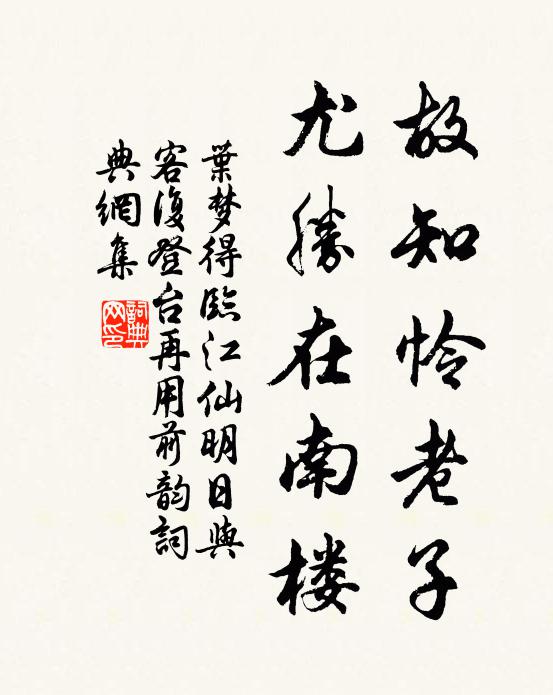 故知怜老子
尤勝在南楼
葉梦得臨江仙明日與
客復登台再用前韵詞
典網集
詞典
网印